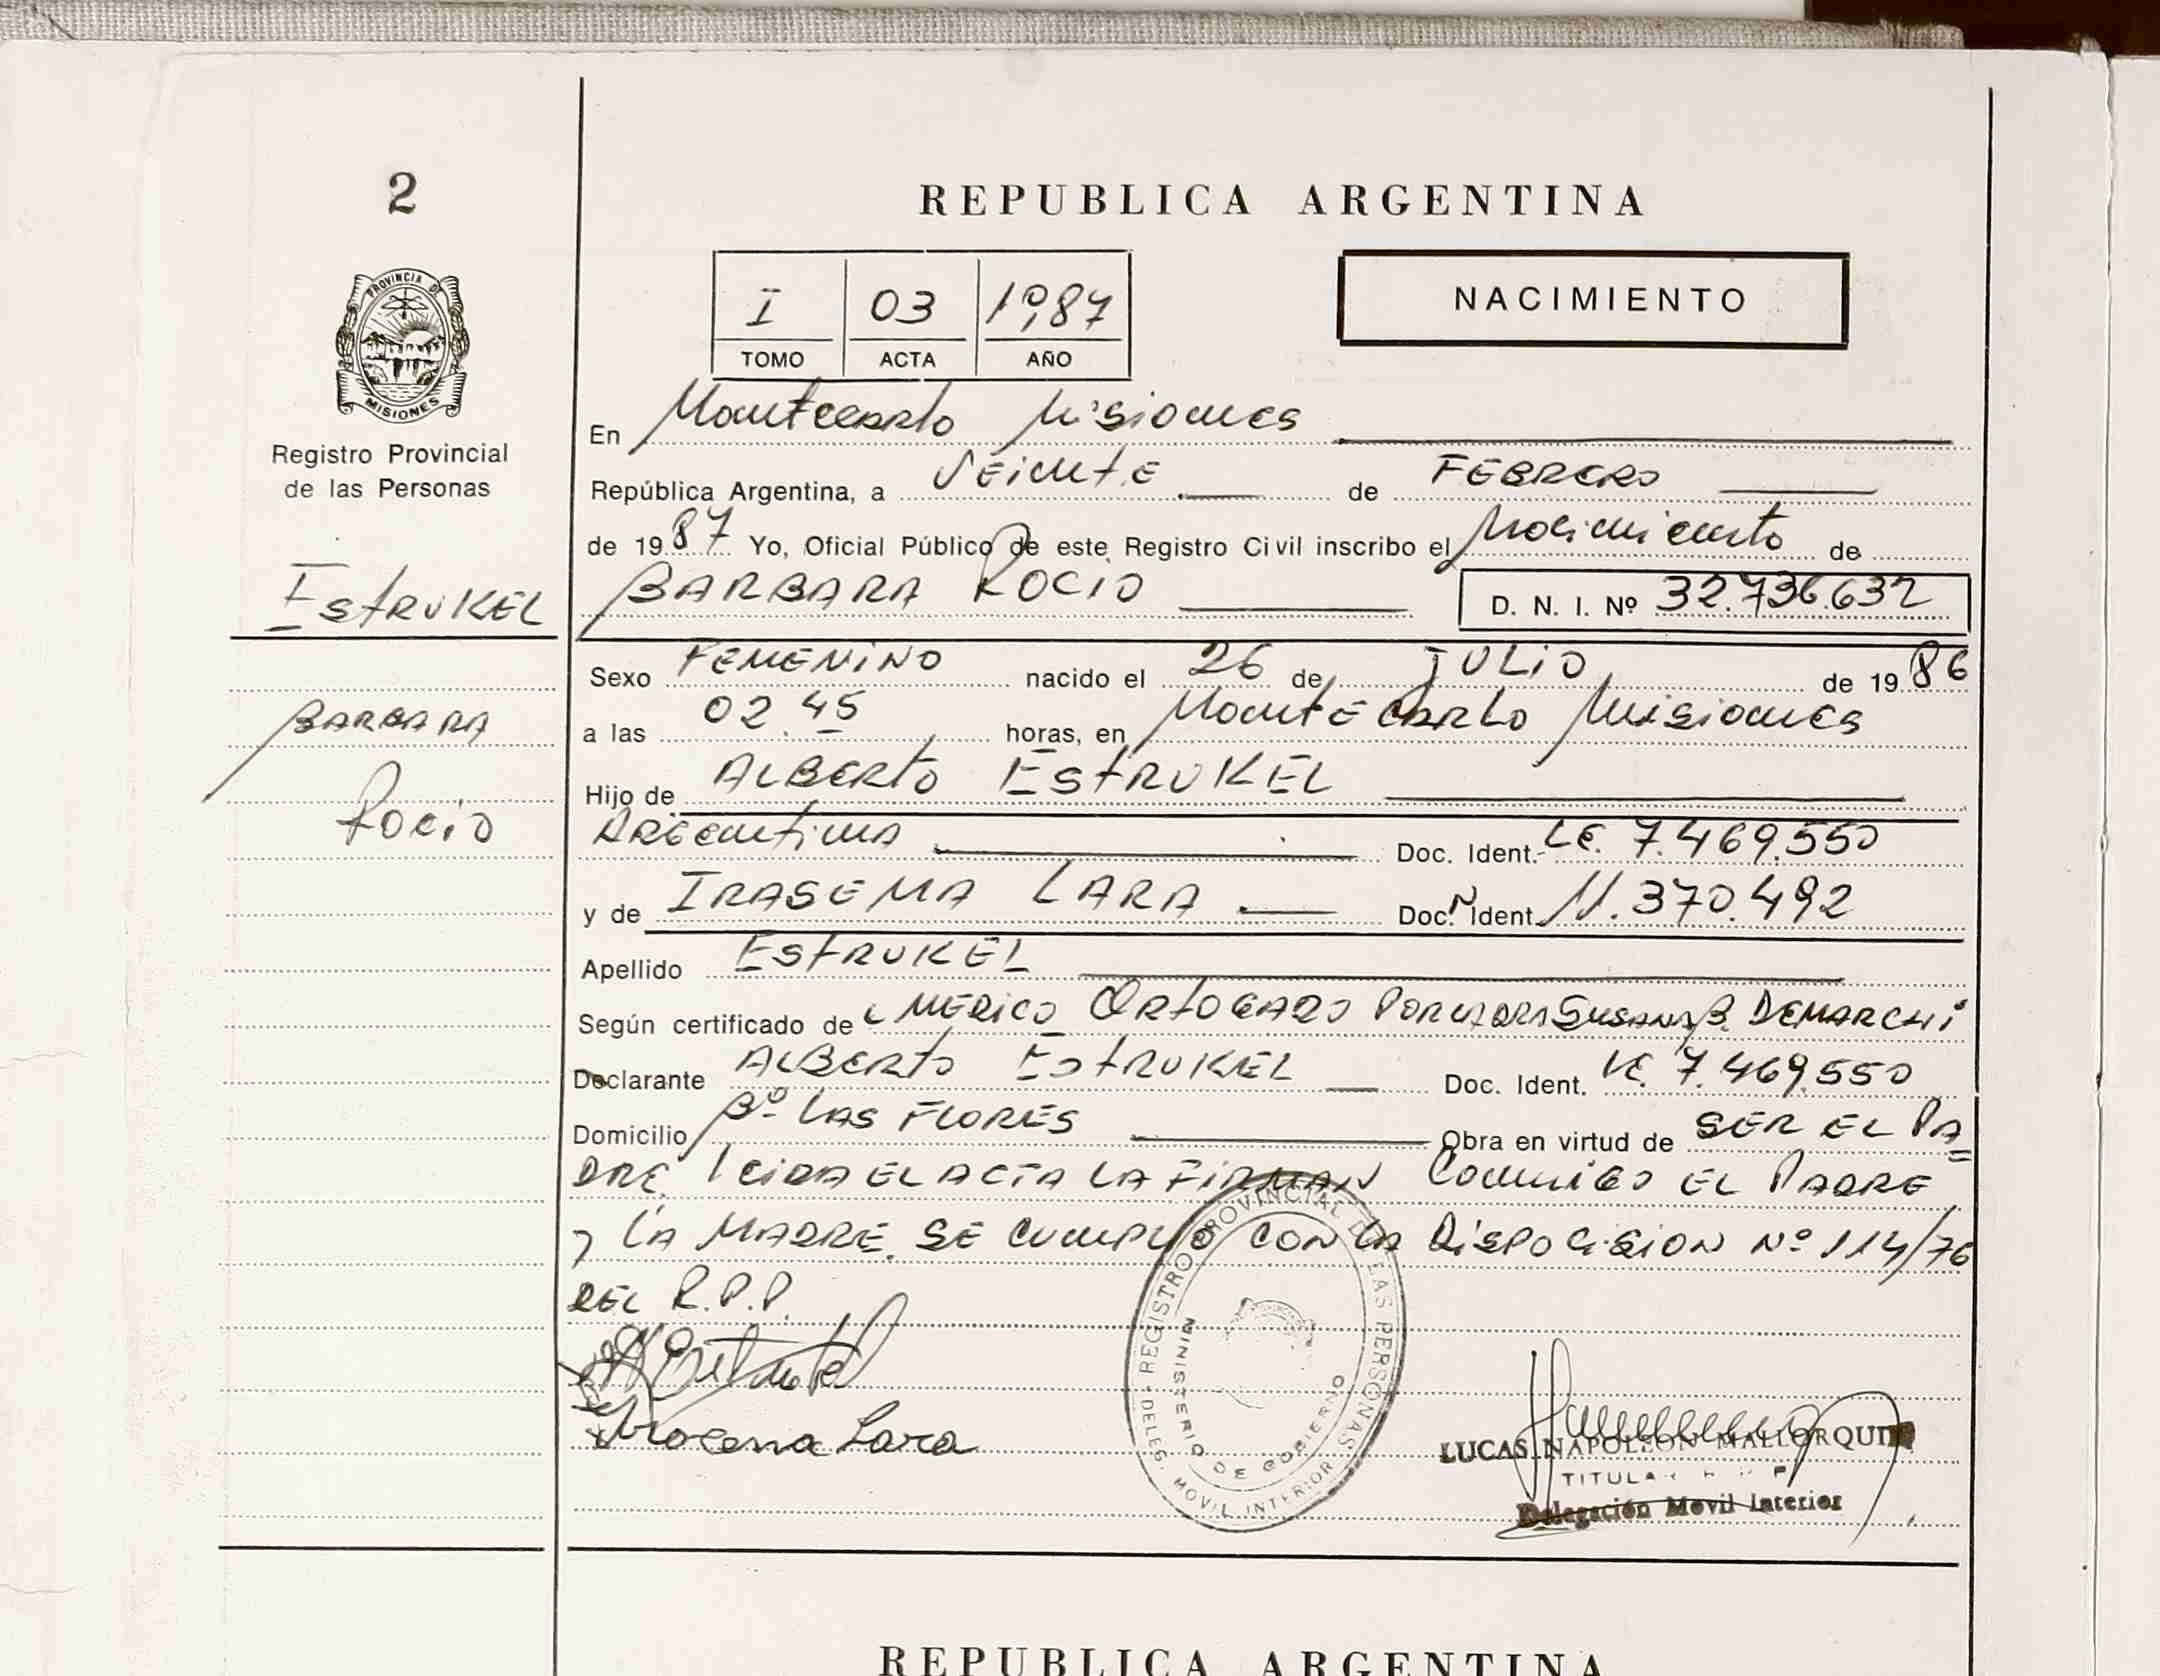 2
REPUBLICA ARGENTINA
I 03 1987
TOMO ACTA AÑO
NACIMIENTO
PROVINCIA DE
MISIONES
Registro Provincial
de las Personas
ESTRUKEL
BARBARA
ROCIO
En Montecarlo Misiones
República Argentina, a VEiNtE de FEBRERO
de 1987 Yo, Oficial Público de este Registro Civil inscribo el Nacimiento de
BARBARA ROCIO D. N. I. Nº 32.736.632
Sexo FEMENINO nacido el 26 de JULIO de 1986
a las 02.45 horas, en MONTECARLO Misiones
Hijo de ALBERTO ESTRUKEL
ARGENTINA Doc. Ident. LE. 7.469.550
y de IRASEMA LARA Doc. Ident. 11.370.492
Apellido ESTRUKEL
Según certificado de MEDICO OTORGADO POR SUSANA B. DEMARCHI
Declarante ALBERTO ESTRUKEL Doc. Ident. LE. 7.469.550
Domicilio Bº LAS FLORES Obra en virtud de SER EL PA=
DRE LEIDA EL ACTA LA FIRMAN CONMIGO EL PADRE
y LA MADRE. SE CUMPLIO CON LA DISPOCISION Nº 114/76
DEL R.P.P.
Irasema Lara
REGISTRO PROVINCIAL DE LAS PERSONAS
DELEG. MOVIL INTERIOR
MINISTERIO DE GOBIERNO
LUCAS NAPOLEON MALLORQUIN
TITULAR
Delegación Movil Interior
REPUBLICA ARGENTINA